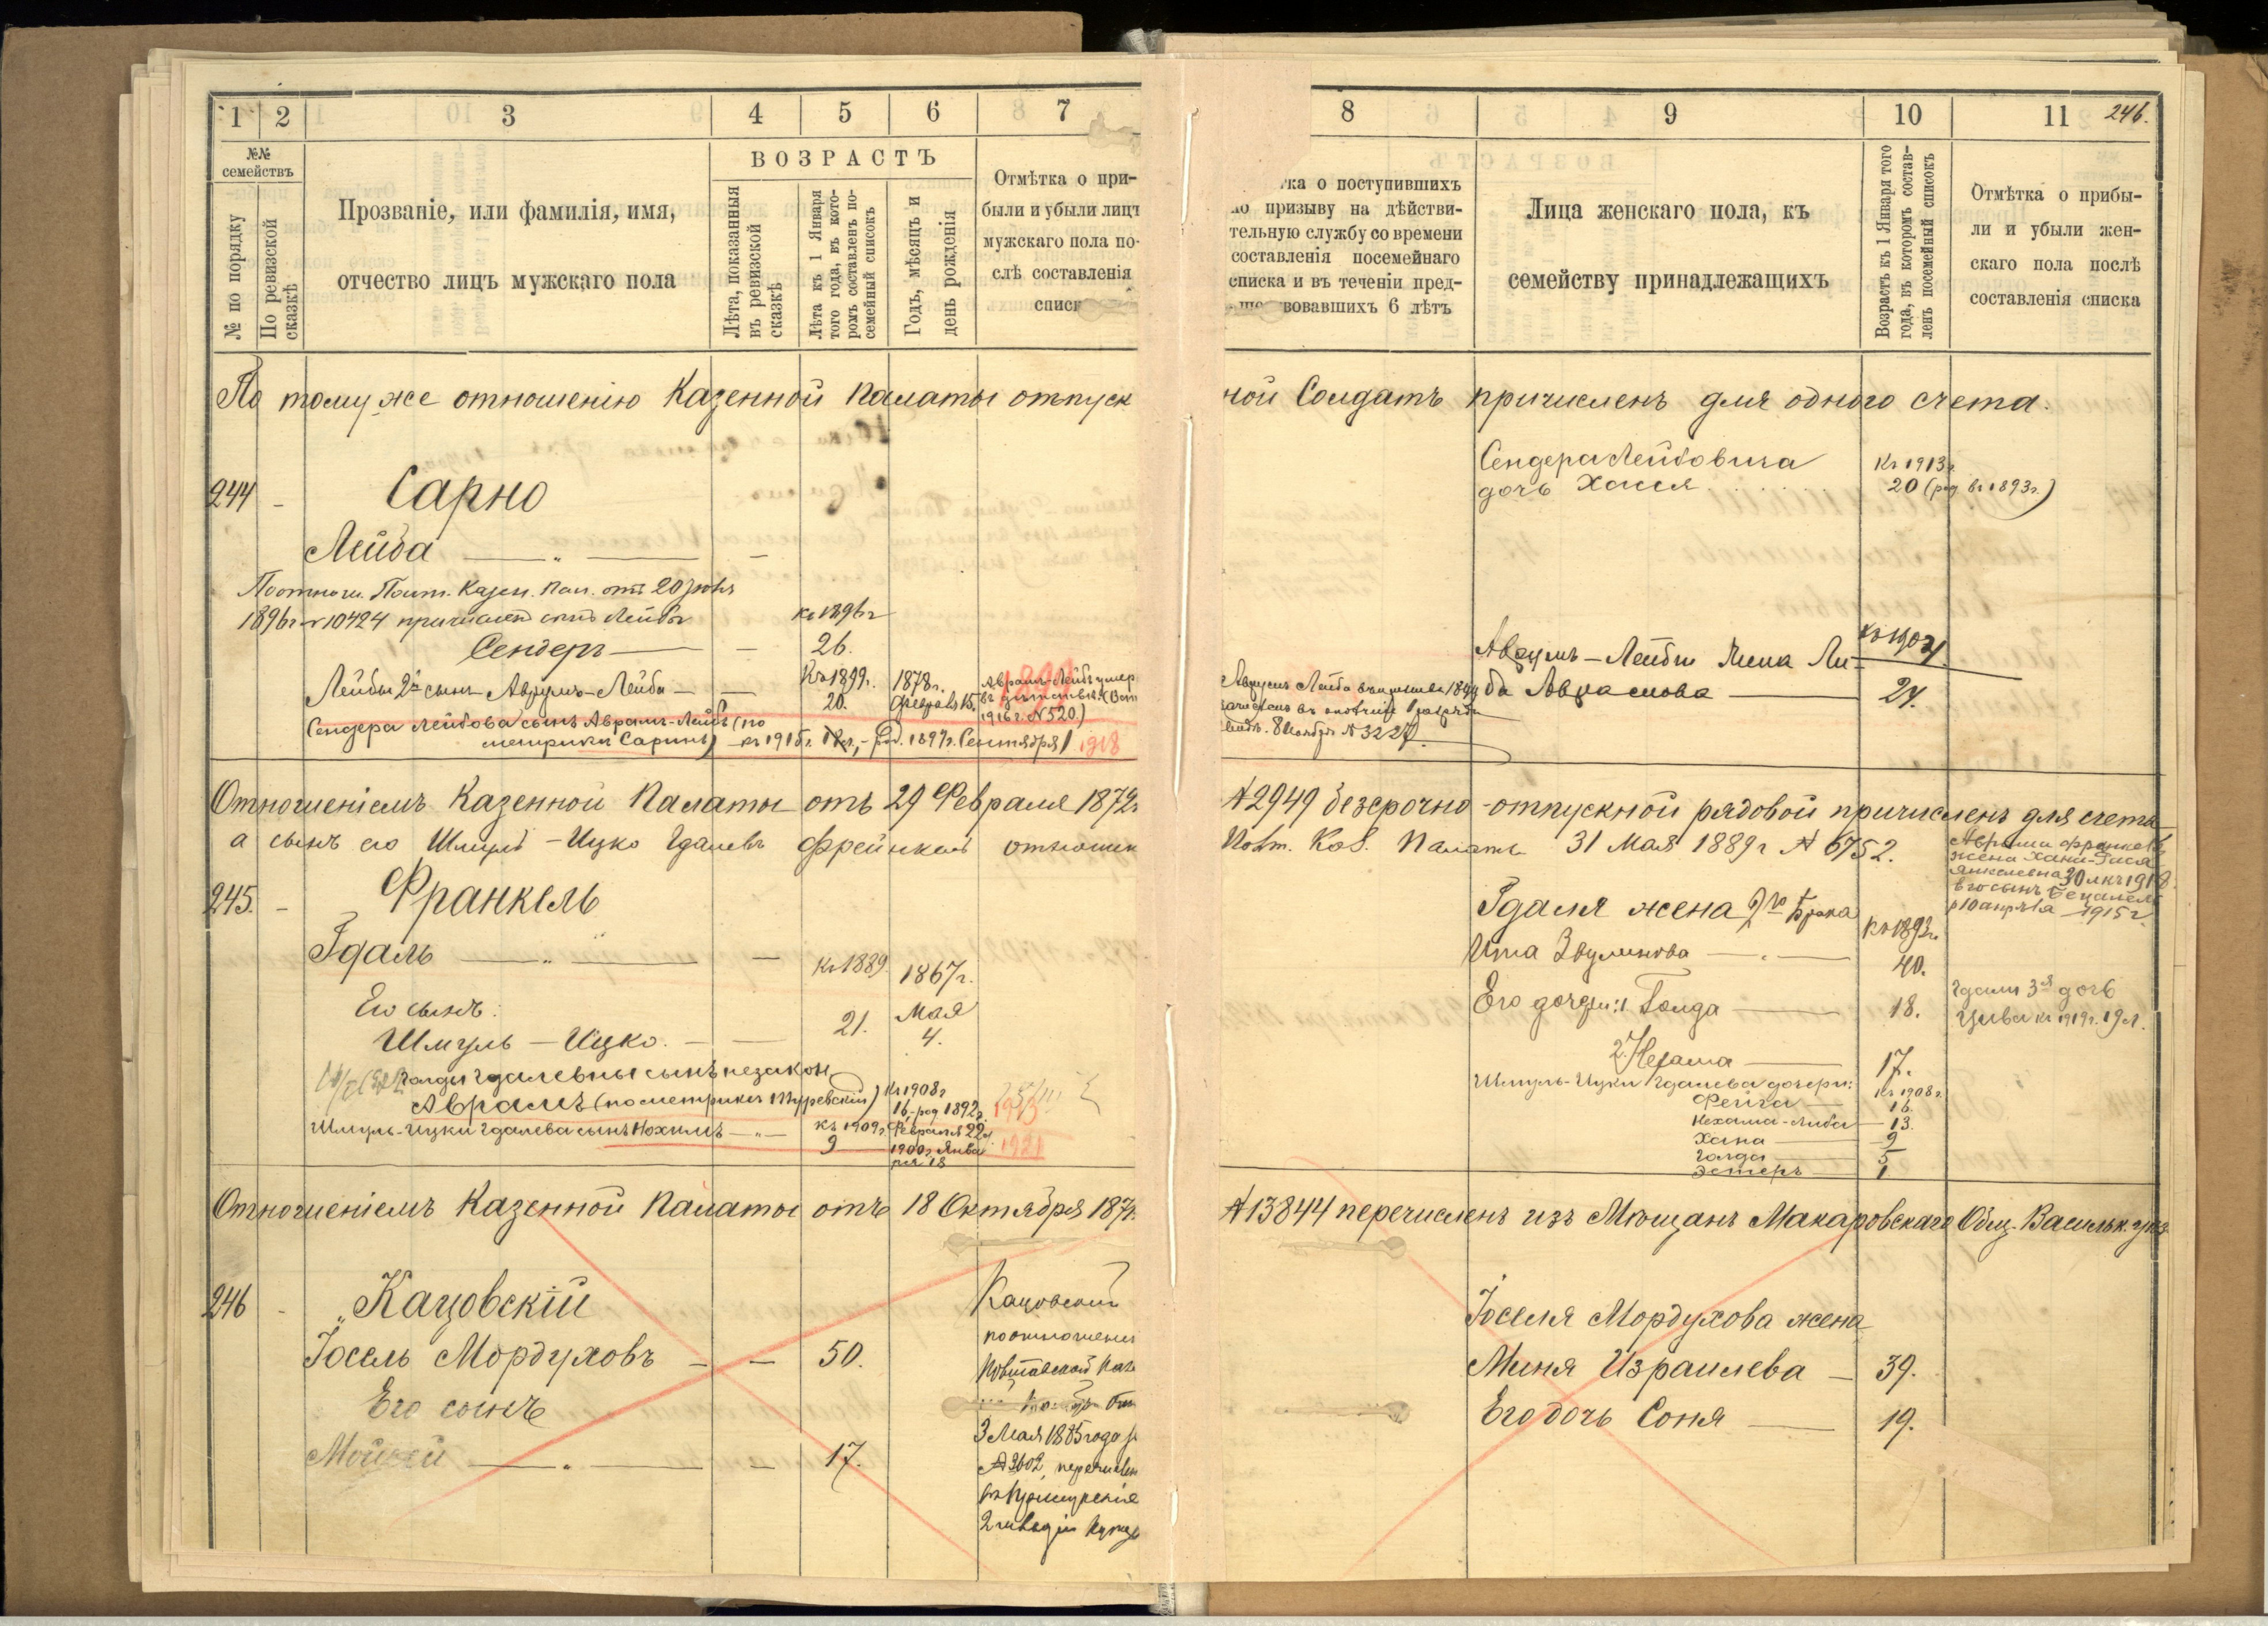 1 2 3 4 5 6 7
№№ семействъ
№ по порядку
По ревизской сказкѣ
Прозваніе, или фамилія, имя,
отчество лицъ мужскаго пола
ВОЗРАСТЪ
Лѣта, показанныя въ ревизской сказкѣ
Лѣта къ 1 Января того года, въ которомъ составленъ посемейный списокъ
Годъ, мѣсяцъ и день рожденія
Отмѣтка о при-
были и убыли лицъ
мужскаго пола по-
слѣ составленія
По тому же отношенію Казенной Палаты отпуск
244 - Сарно
Лейба — „ — -
Полт. Казен. Пал. отъ 20
1896 г. №10424 причисленъ сынъ Лейбы къ 1896 г
Сендеръ — - 26.
Лейбы 2й сынъ Аврумъ-Лейба — - Къ 1899г. 20. 1878 г. Февраля 15.
Аврамъ-Лейба умеръ
1916 г. №520.)
1899
Сендера Лейбова сынъ Аврамъ-Лейбъ (по
метрики Саринъ) — къ 1915 г. род. 1897 г. Сентября 1 1918
Отношеніемъ Казенной Палаты отъ 29 Февраля 1872
а сынъ его Шмуль-Ицко Гдалевъ Френкель
245. - Франкель
Гдаль — „ — -
Его сынъ:
Шмуль-Ицко. - - Къ 1889 21. 1867 г. Мая 4.
Голды Гдалевны сынъ незакон
Аврамъ (по метрики Туревскій) Къ 1908 г 16, род 1892 г. Февраля 22 1913
Шмуль-Ицки Гдалева сынъ Нохимъ — „ — къ 1909 г. 9 1900 г. Января 18 1921
Отношеніемъ Казенной Палаты отъ 18 Октября 187
246 - Кацовскій
Іосель Мордуховъ - - 50.
Его сынъ
Мойсей — „ — - 17.
Кацовскій
по отношенію
Полтавской Каз
3 Мая 1885 года
№3602, перечислен
2 гильдіи
8 9 10 11 246.
о поступившихъ
по призыву на дѣйстви-
тельную службу со времени
составленія посемейнаго
списка и въ теченіи пред-
вовавшихъ 6 лѣтъ
Лица женскаго пола, къ
семейству принадлежащихъ
Возрастъ къ 1 Января того года, въ которомъ составленъ посемейный списокъ
Отмѣтка о прибы-
ли и убыли жен-
скаго пола послѣ
составленія списка
ной Солдатъ причисленъ для одного счета.
Сендера Лейбовича Къ 1913 г.
дочь Хася 20 (род. въ 1893 г.)
Аврумъ-Лейбы жена Ли-
ба Аврамова — 24.
Аврумъ Лейба
№3227.
№2949 безсрочно-отпускной рядовой причисленъ для счета
Полт. Каз. Палаты 31 Мая 1889 г № 6752.
Аврама Франкель
жена Хана-
Янкелевна 30 л къ 1918.
его сынъ Бецалель
р 10 апрѣля 1915 г
Гдаля жена 2го брака Къ 1892 г.
Ита Звулинова — 40.
Его дочери: 1. Голда — 18.
Гдали 3я дочь
Цива къ 1919 г. 19 л.
2. Нехама — 17.
Шмуль-Ицки Гдалева дочери: Къ 1908 г.
Фейга — 16.
Нехама-Либа — 13.
Хана — 9
Голда — 5
Эстеръ — 1
№13844 перечисленъ изъ Мѣщанъ Макаровскаго Общ. Васильк. уѣз.
Іоселя Мордухова жена
Миня Израилева — 39.
Его дочь Соня — 19.